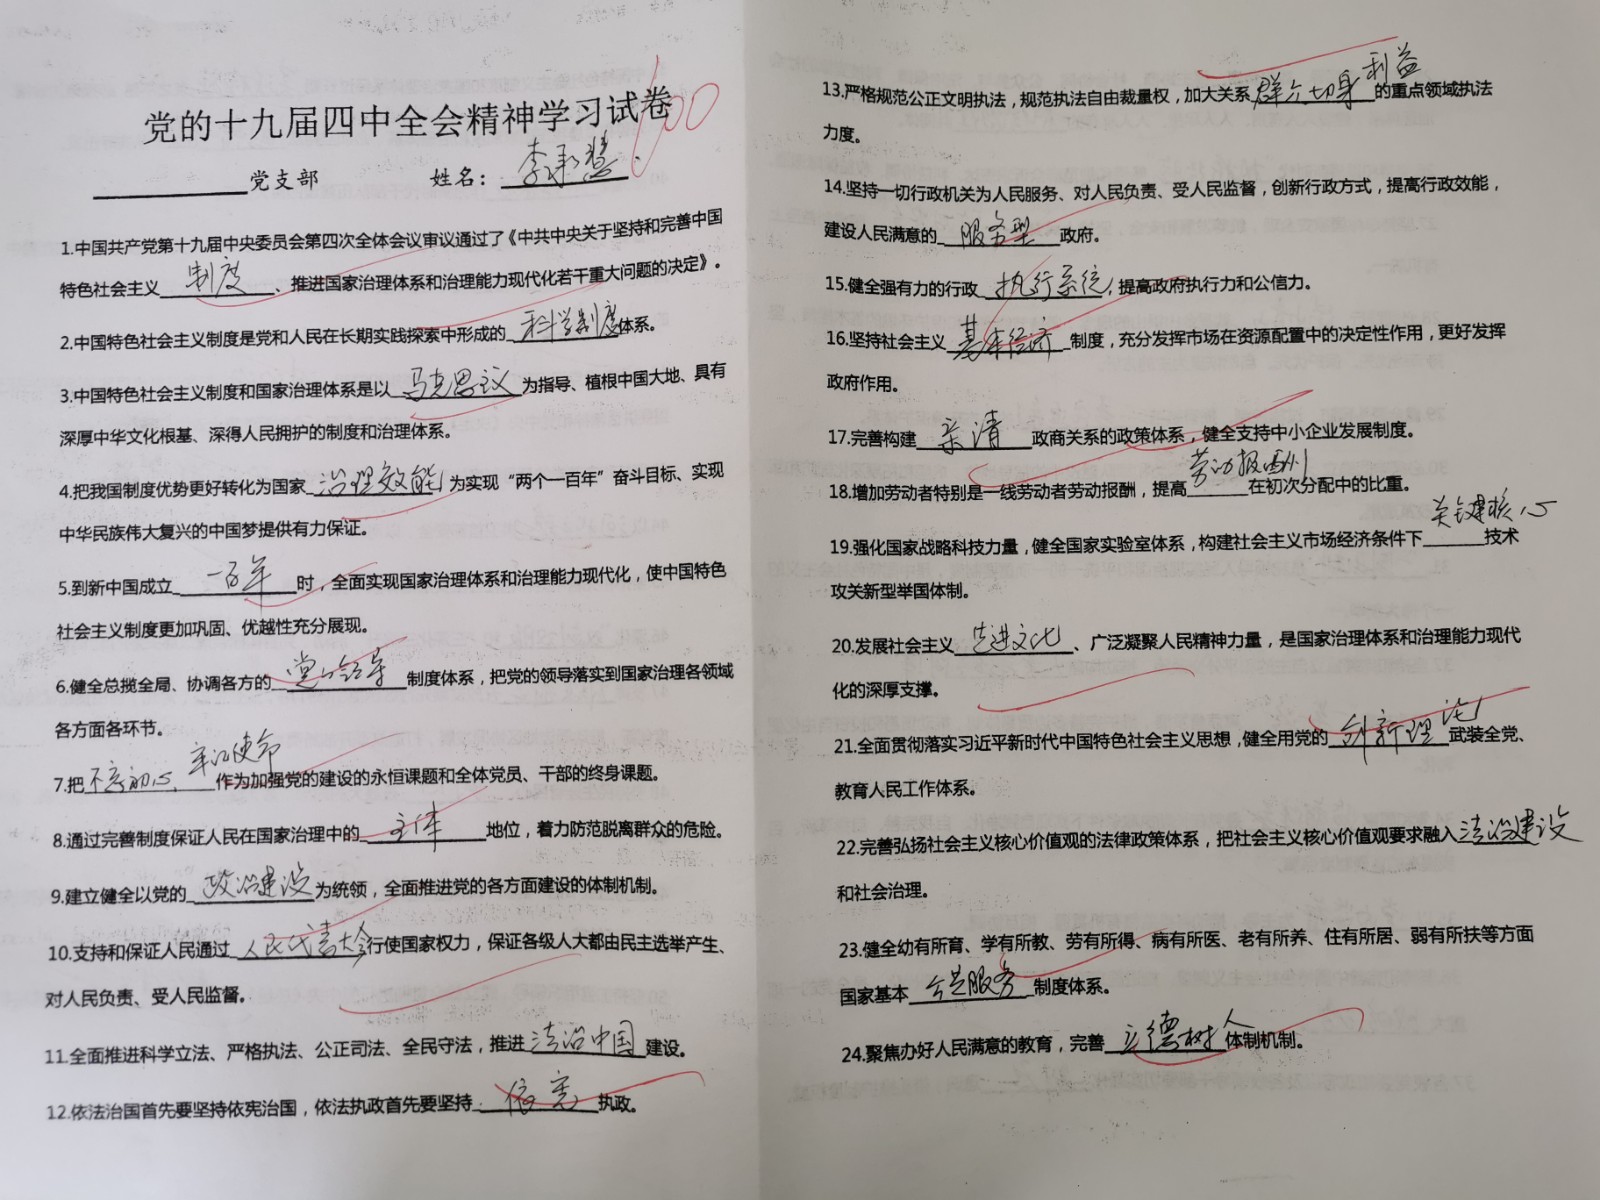 党的十九届四中全会精神学习试卷
100
党支部 姓名：李承慧
1.中国共产党第十九届中央委员会第四次全体会议审议通过了《中共中央关于坚持和完善中国
特色社会主义制度、推进国家治理体系和治理能力现代化若干重大问题的决定》。
2.中国特色社会主义制度是党和人民在长期实践探索中形成的科学制度体系。
3.中国特色社会主义制度和国家治理体系是以马克思主义为指导、植根中国大地、具有
深厚中华文化根基、深得人民拥护的制度和治理体系。
4.把我国制度优势更好转化为国家治理效能，为实现“两个一百年”奋斗目标、实现
中华民族伟大复兴的中国梦提供有力保证。
5.到新中国成立一百年时，全面实现国家治理体系和治理能力现代化，使中国特色
社会主义制度更加巩固、优越性充分展现。
6.健全总揽全局、协调各方的党的领导制度体系，把党的领导落实到国家治理各领域
各方面各环节。
7.把不忘初心、牢记使命作为加强党的建设的永恒课题和全体党员、干部的终身课题。
8.通过完善制度保证人民在国家治理中的主体地位，着力防范脱离群众的危险。
9.建立健全以党的政治建设为统领，全面推进党的各方面建设的体制机制。
10.支持和保证人民通过人民代表大会行使国家权力，保证各级人大都由民主选举产生、
对人民负责、受人民监督。
11.全面推进科学立法、严格执法、公正司法、全民守法，推进法治中国建设。
12.依法治国首先要坚持依宪治国，依法执政首先要坚持依宪执政。
13.严格规范公正文明执法，规范执法自由裁量权，加大关系群众切身利益的重点领域执法
力度。
14.坚持一切行政机关为人民服务、对人民负责、受人民监督，创新行政方式，提高行政效能，
建设人民满意的服务型政府。
15.健全强有力的行政执行系统，提高政府执行力和公信力。
16.坚持社会主义基本经济制度，充分发挥市场在资源配置中的决定性作用，更好发挥
政府作用。
17.完善构建亲清政商关系的政策体系，健全支持中小企业发展制度。
18.增加劳动者特别是一线劳动者劳动报酬，提高劳动报酬在初次分配中的比重。
19.强化国家战略科技力量，健全国家实验室体系，构建社会主义市场经济条件下关键核心技术
攻关新型举国体制。
20.发展社会主义先进文化、广泛凝聚人民精神力量，是国家治理体系和治理能力现代
化的深厚支撑。
21.全面贯彻落实习近平新时代中国特色社会主义思想，健全用党的创新理论武装全党、
教育人民工作体系。
22.完善弘扬社会主义核心价值观的法律政策体系，把社会主义核心价值观要求融入法治建设
和社会治理。
23.健全幼有所育、学有所教、劳有所得、病有所医、老有所养、住有所居、弱有所扶等方面
国家基本公共服务制度体系。
24.聚焦办好人民满意的教育，完善立德树人体制机制。